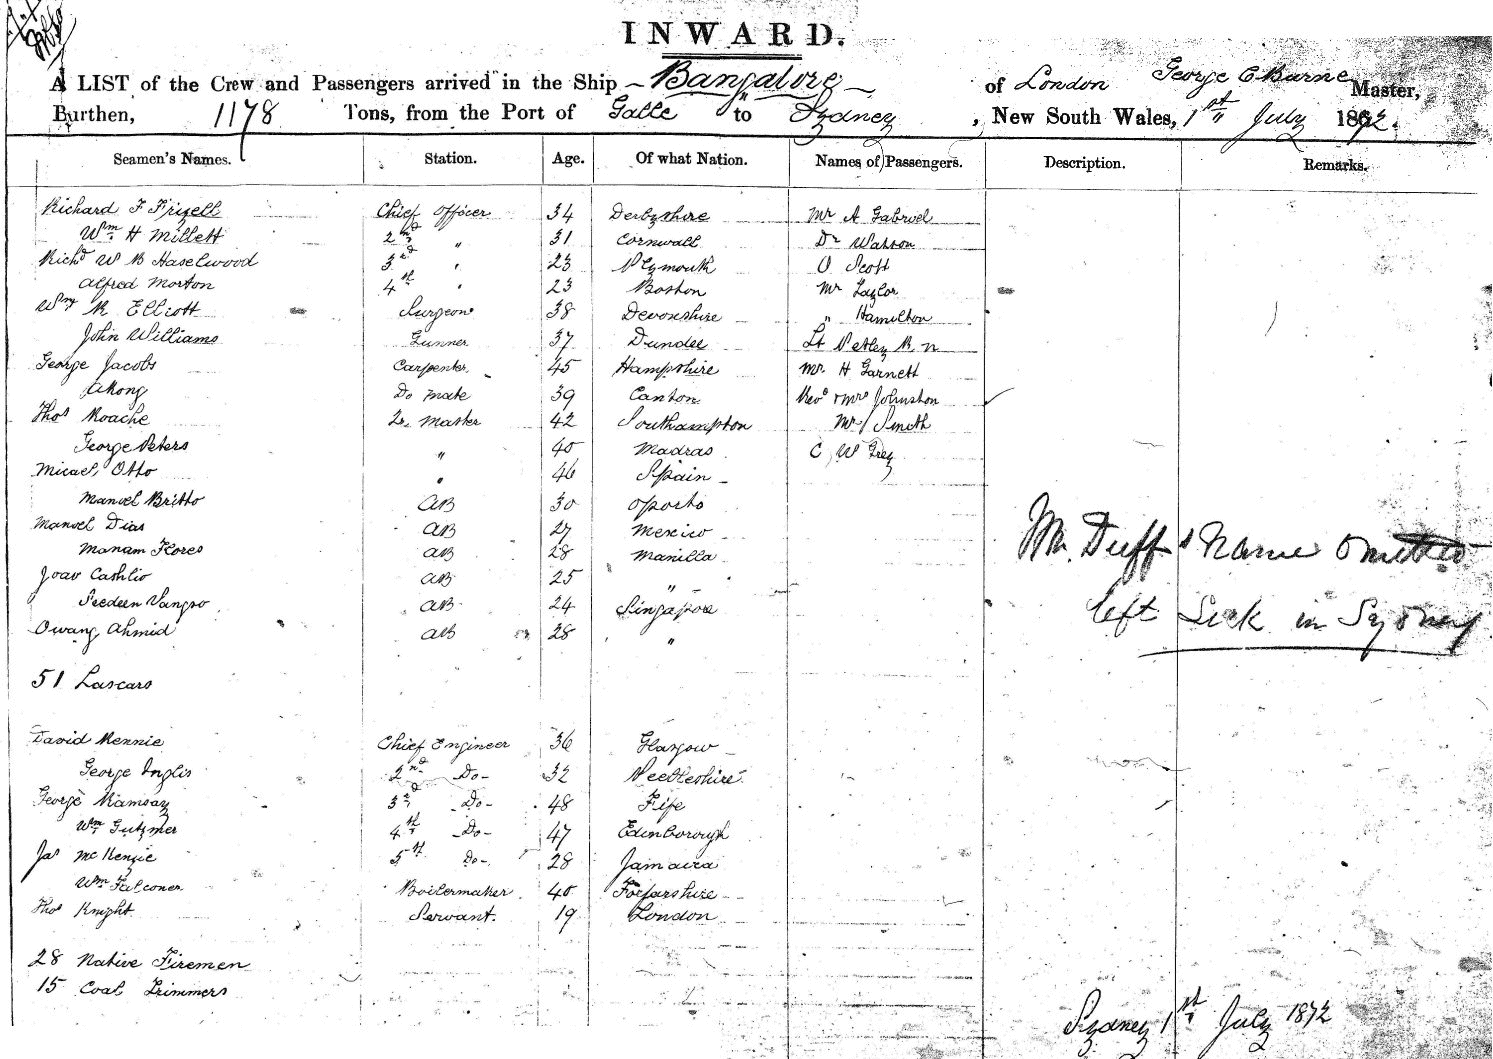 INWARD.
A LIST of the Crew and Passengers arrived in the Ship Bangalore of London George C Burne Master,
Burthen, 1178 Tons, from the Port of Galle to Sydney, New South Wales, 1st July 1872.
Seamen's Names. Station. Age. Of what Nation. Names of Passengers. Description. Remarks.
Richard F Frizell Chief Officer 34 Derbyshire Mr A Gabriel
Wm H Millett 2nd " 31 Cornwall Dr Watson
Richd W B Haselwood 3rd " 23 Plymouth Scott
Alfred Morton 4th " 23 Boston Mr Taylor
Wm R Elliott Surgeon 38 Devonshire " Hamilton
John Williams Gunner 37 Dundee Lt Petley R N
George Jacobs Carpenter 45 Hampshire Mr H Garnett
Akong Do Mate 39 Canton Revd & Mrs Johnston
Thos Roache Qr Master 42 Southampton Mr Smith
George Peters " 40 Madras C W Grey
Micael Otto " 46 Spain
Manoel Britto AB 30 Oporto
Manoel Dias AB 27 Mexico
Manam Flores AB 28 Manilla
Joao Cashlio AB 25 "
Seedeen Vangso AB 24 Singapore
Owang Ahmid AB 28 "
Mr. Duff's Name Omitted
left Sick in Sydney
51 Lascars
David Rennie Chief Engineer 36 Glasgow
George Inglis 2nd Do 32 Peebleshire
George Ramsay 3rd Do 48 Fife
Wm Gutzmer 4th Do 47 Edinborough
Jas McKenzie 5th Do 28 Jamaica
Wm Falconer Boilermaker 40 Forfarshire
Thos Knight Servant. 19 London
28 Native Firemen
15 Coal Trimmers
Sydney 1st July 1872